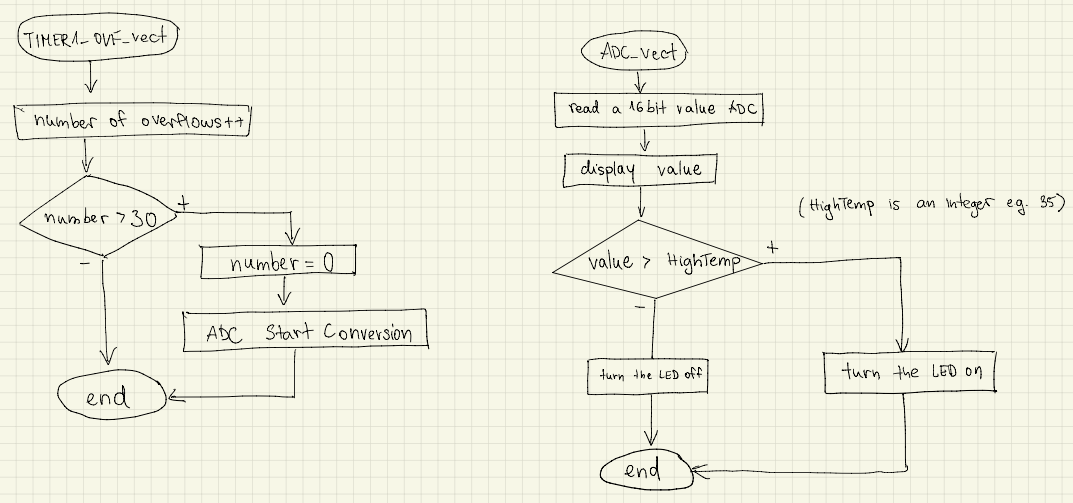 TIMER1_OVF_vect
number of overflows++
number > 30
+
-
number = 0
ADC Start Conversion
end
ADC_vect
read a 16bit value ADC
display value
(HighTemp is an integer eg. 35)
value > HighTemp
+
-
turn the LED off
turn the LED on
end